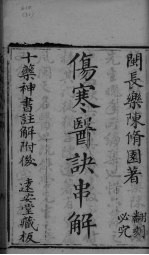 閩長樂陳脩園著
翻刻必究
傷寒醫訣串解
十藥神書註解附後
遠安堂藏板